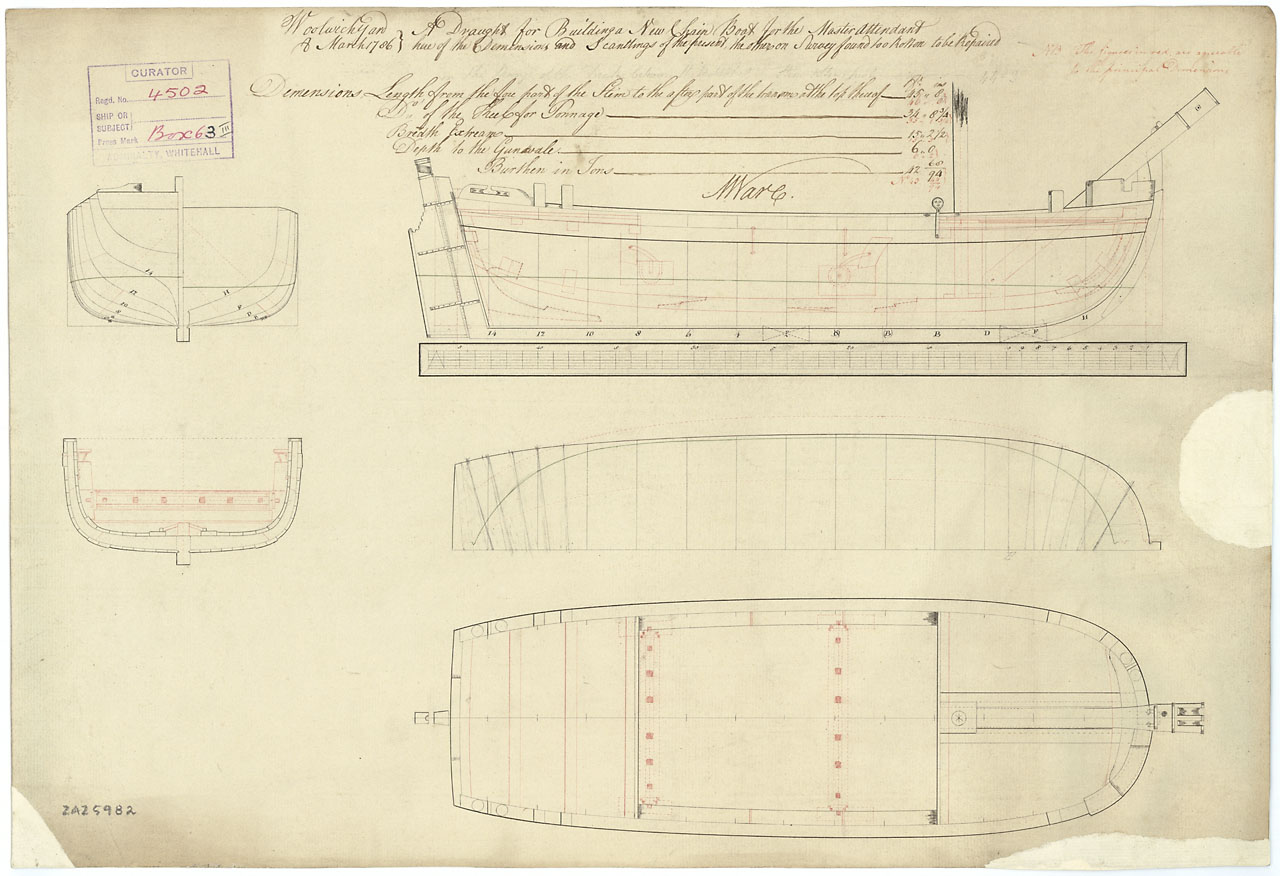 Woolwich Yard } A Draught for Building a New Chain Boat for the Master Attendant
8 March 1786 } hue of the Demensions and Scantlings of the present the other on Survey found too Rotten to be Repaired
NB The figures in red are
to the principal Demensions
CURATOR
Regd. No. 4502
SHIP OR
SUBJECT
Press Mark Box 63 III
WHITEHALL
Demensions Length from the fore part of the Stem to the after part of the transom at the top thereof
Do. of the Keel for Tonnage 34 " 8 3/4
Breath Extream 15 " 2 1/2
Depth to the Gunwale 6 " 0
Burthen in Tons 42 60/94
M Ware.
14 12 10 8 6 4 B D F H
ZAZ5982